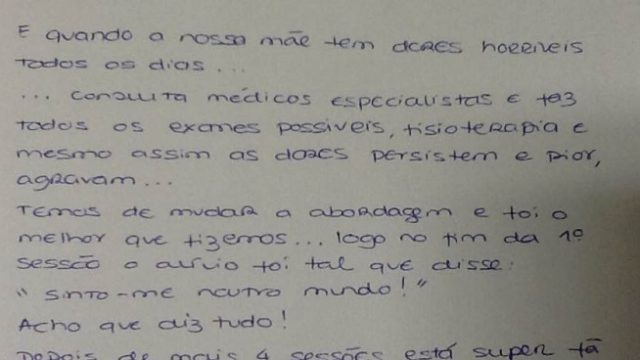 E quando a nossa mãe tem dores horriveis
todos os dias...
... consulta médicos especialistas e faz
todos os exames possiveis, fisioterapia e
mesmo assim as dores persistem e pior,
agravam...
Temos de mudar a abordagem e foi o
melhor que fizemos... logo no fim da 1ª
sessão o alívio foi tal que disse:
" Sinto-me noutro mundo! "
Acho que diz tudo!
Depois de mais 4 sessões está super fã